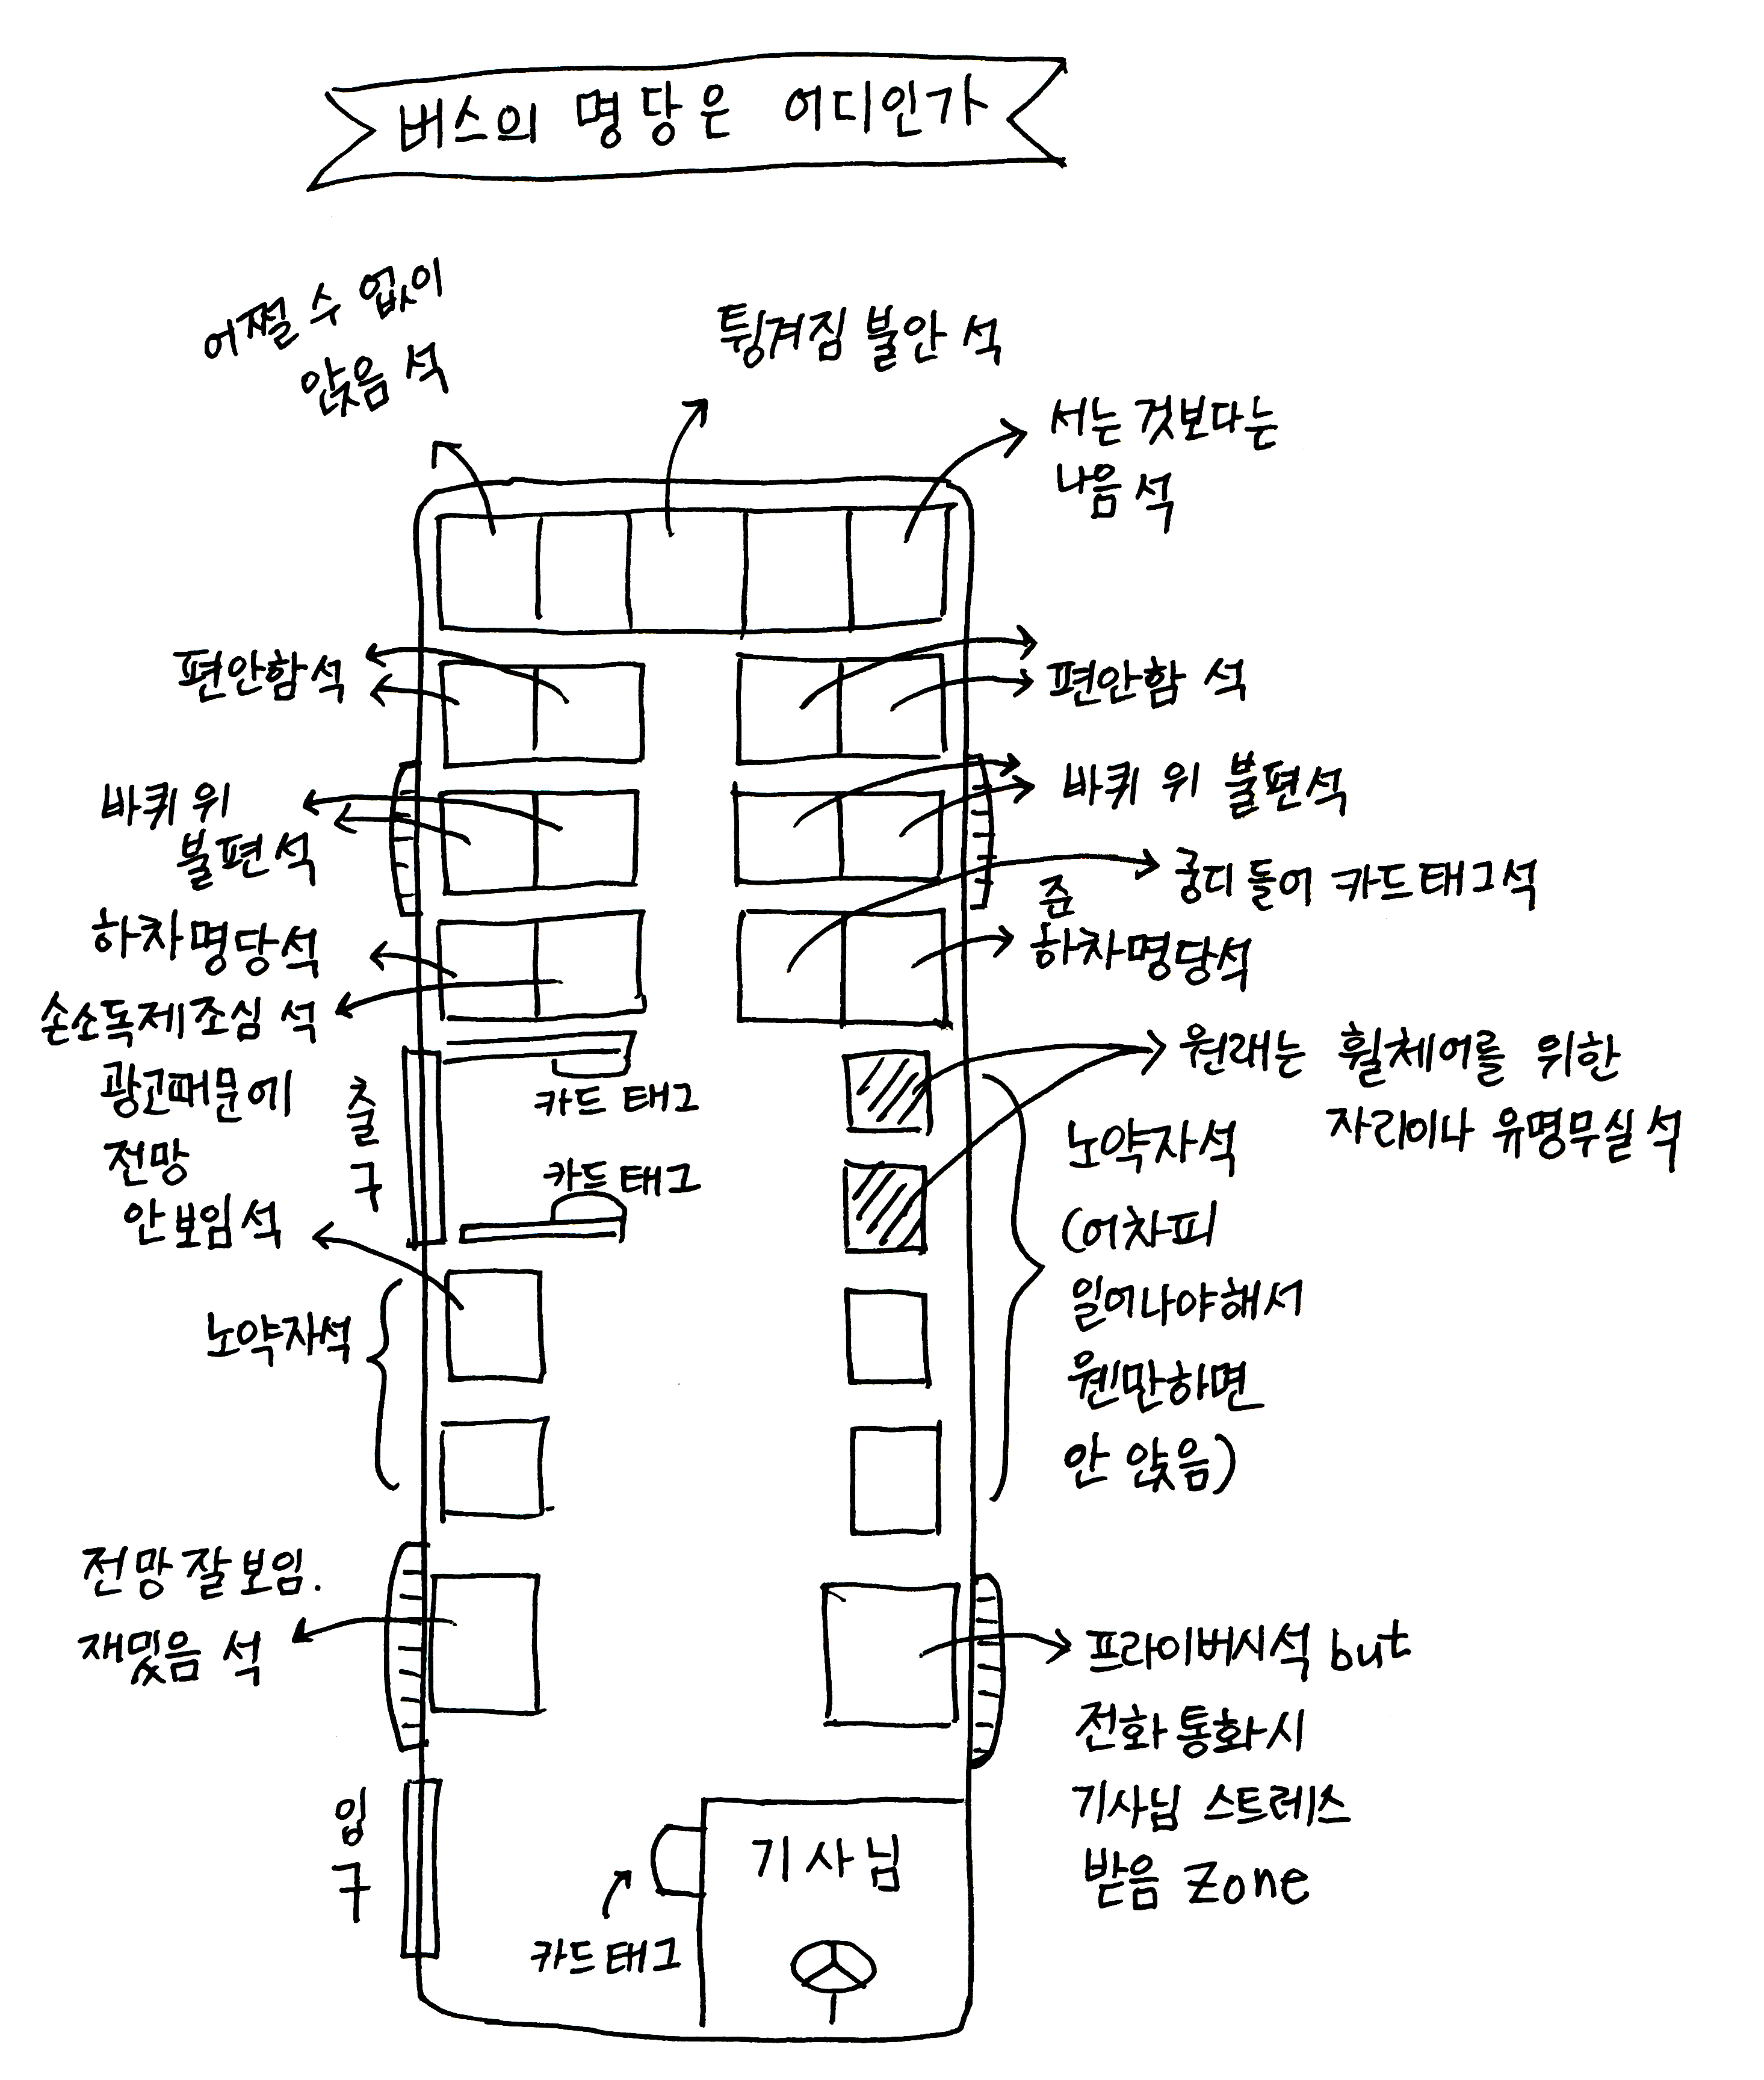 버스의 명당은 어디인가
어쩔 수 없이
앉음 석
튕겨짐 불안 석
서는 것보다는
나음 석
편안함석
편안함 석
바퀴 위
불편석
바퀴 위 불편석
궁디 들어 카드태그석
하차명당석
준
하차명당석
손소독제조심 석
원래는 휠체어를 위한
자리이나 유명무실 석
광고때문에
전망
안보임석
출
구
카드 태그
카드 태그
노약자석
(어차피
일어나야해서
웬만하면
안 앉음)
노약자석
전망잘보임.
재밌음 석
프라이버시석 but
전화통화시
기사님 스트레스
받음 zone
입
구
기사님
카드태그